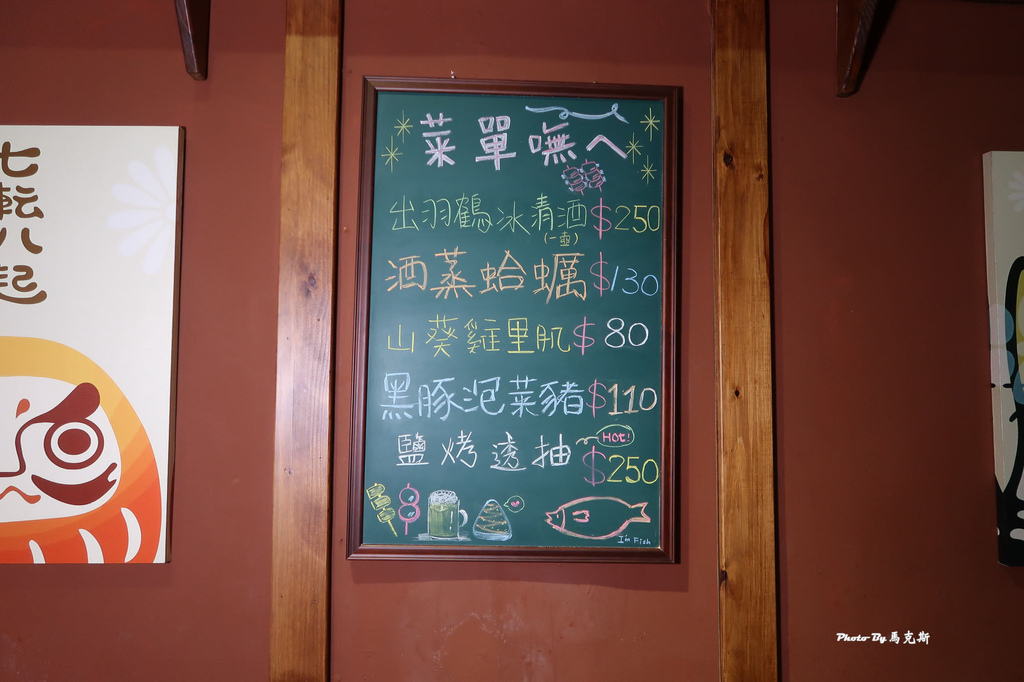 七転八起
菜單嘸ㄟ
出羽鶴冰清酒 $250
(一壺)
酒蒸蛤蠣 $130
山葵雞里肌 $80
黑豚泡菜豬 $110
鹽烤透抽 $250
Hot!
I'm Fish
Photo By 馬克斯